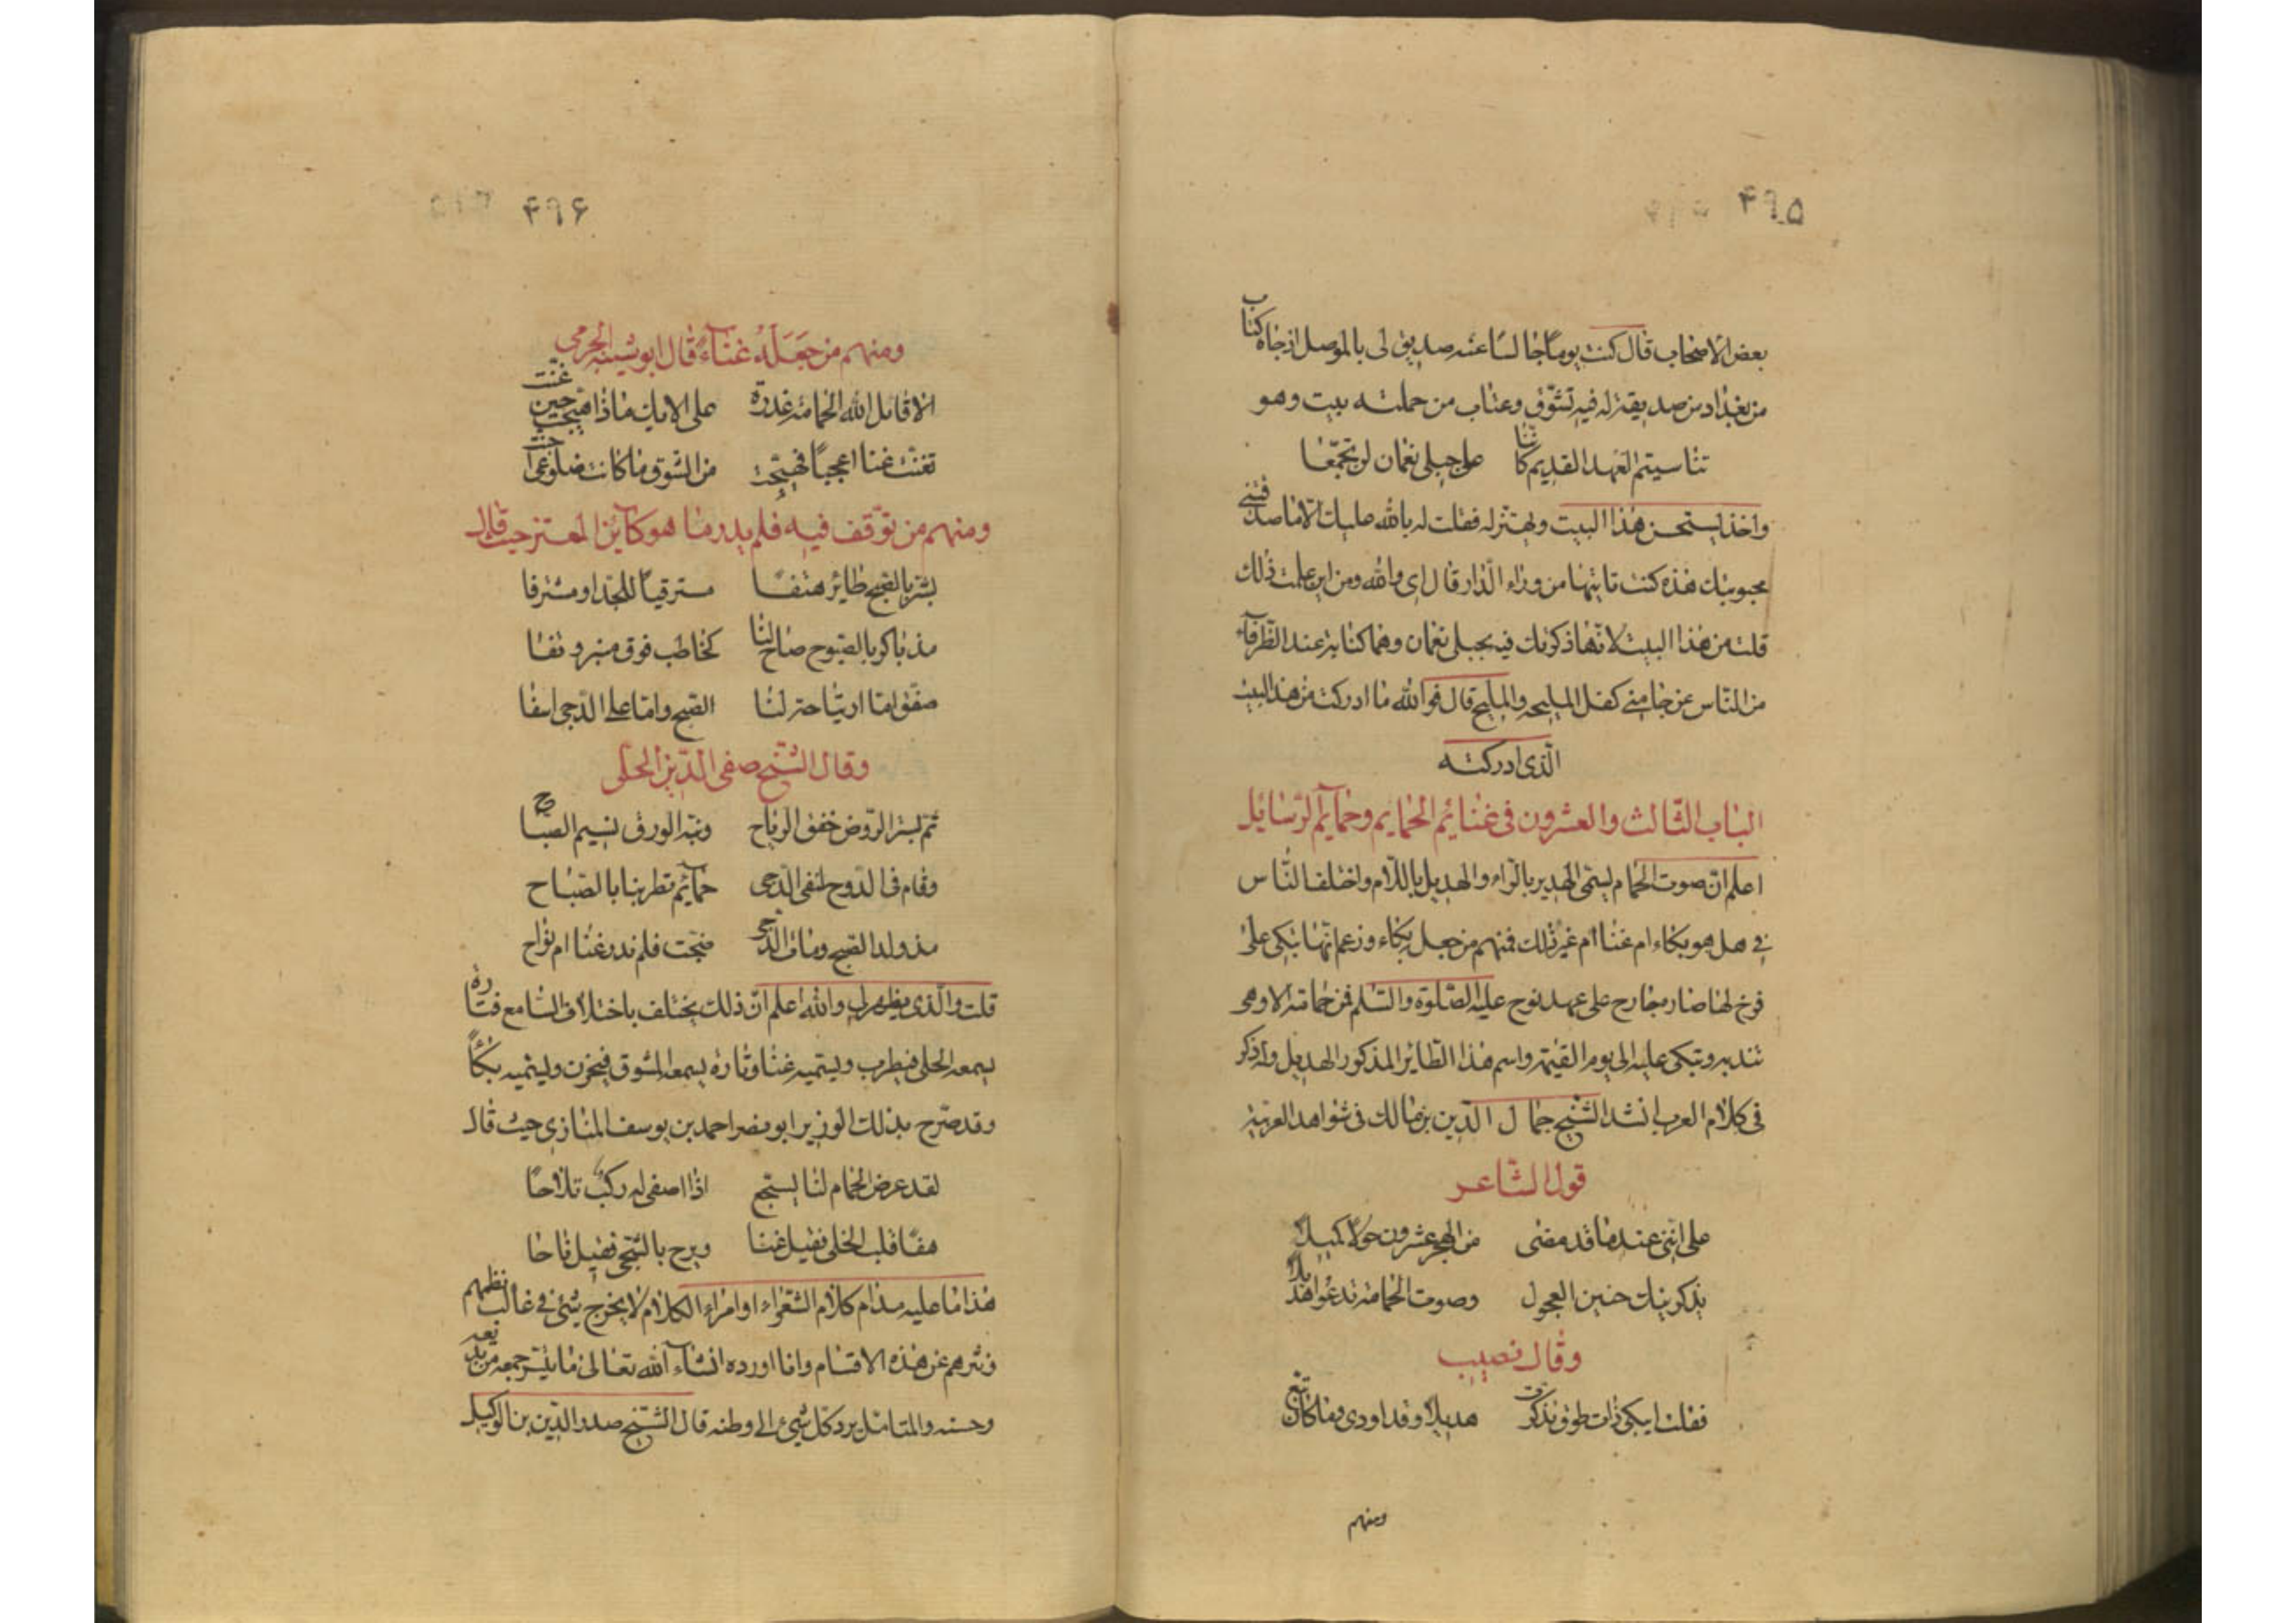 ۴۹۵
بعض الاصحاب قال كنت يوماً جالسا عند صديق لى بالموصل اذ جاه كتاب
من بغداد من صديقة له فيه تشوّق وعتاب من جملته بيت وهو
تناسيتم العهد القديم كاننا على جبلى نعمان لن نتجمّعا
واخذ يستحسن هذا البيت ويهتز له فقلت له بالله عليك الا ما صدقتنى
محبوبتك هذه كنت تاتيها من وراء الدّار قال اى والله ومن اين علمت ذلك
قلت من هذا البيت لانّها ذكرتك فيه بجبلى نعمان وهما كناية عند الظرفاء
من النّاس عن جانبى كفل المليحه والمليح قال فوالله ما ادركت من هذا البيت
الّذى ادركته
الباب الثّالث والعشرون فى غنائم الحمايم وحمآيم الرّسايل
اعلم انّ صوت الحمام يسمّى الهدير بالرّاء والهديل باللّام واختلف النّاس
فى هل هو بكاء ام غنا ام غير ذلك فمنهم من جعل بكاء وزعم انّها تبكى على
فرخ لها صار جارح على عهد نوح عليه الصّلوة والسّلم فمن حمامة الا وهى
تندبه وتبكى عليه الى يوم القيٰمة واسم هذا الطّاير المذكور الهديل وله ذكر
فى كلام العرب انشد الشّيخ جمال الدّين بن مالك فى شواهد العربيّة
قول الشّاعر
على انّنى عند ما قد مضى من الهجر عشرون حولا كميلا
يذكرنيك حنين العجول وصوت الحمامة تدعوا هديلا
وقال نصيب
فقلت ايبكى ذات طوق تذكرت هديلا وقد اودى وما كان تبّع
ومنهم
۴۹۶
ومنهم من جَعَلَهُ غنآءً قال ابو شيبه الجرمى
الا قاتل الله الحمامة غدوة على الايك ماذا هيّجت حين غنّت
تغنّت غنا اعجميّاً فهيّجت من الشوق ما كانت ضلوعى اجنّت
ومنهم من توّقف فيه فلم يدر ما هو كآبن المعتز حيث قال
بشّر بالصّبح طاير هتفا مسترقياً للجدار مشرفا
مذ باكر بالصّبوح صاح لنا كخاطب فوق منبر وقفا
صفّق امّا ارتياحة لسنا الصّبح وامّا على الدّجى اسفا
وقال الشّيخ صفى الدّين الحلّى
ثمّ بسرّ الرّوض خفق الرياح ونبّه الورق نسيم الصّباح
وقام فى الدّوح لنفى الدّجى حمآئم تطربنا بالصّباح
مذ ولد الصّبح ومات الدّجى ضجّت فلم ندر غنا ام نواح
قلت والّذى يظهر لى والله اعلم انّ ذلك يختلف باختلاف السّامع فتارة
يسمعه الخلى فيطرب ويسمّيه غنا وتارة يسمعه المشوق فيحزن ويسمّيه بكآً
وقد صرّح بذلك الوزير ابو مضر احمد بن يوسف المنازى حيث قال
لقد عرض الحمام لنا بسجع اذا اصغى له ركب تلاحا
هفا قلب الخلى فقيل غنا وبرح بالشّجى فقيل ناحا
هذا ما عليه مدام كلام الشعراء او امراء الكلام لا يخرج شئ فى غالب نظمهم
ونثرهم عن هذه الاقسام وانا اورده انشآء الله تعالى ما يتيسّر جمعه من بديعه
وحسنه والمتامّل يرد كل شئ الى وطنه قال الشيخ صدر الدّين بن الوكيل